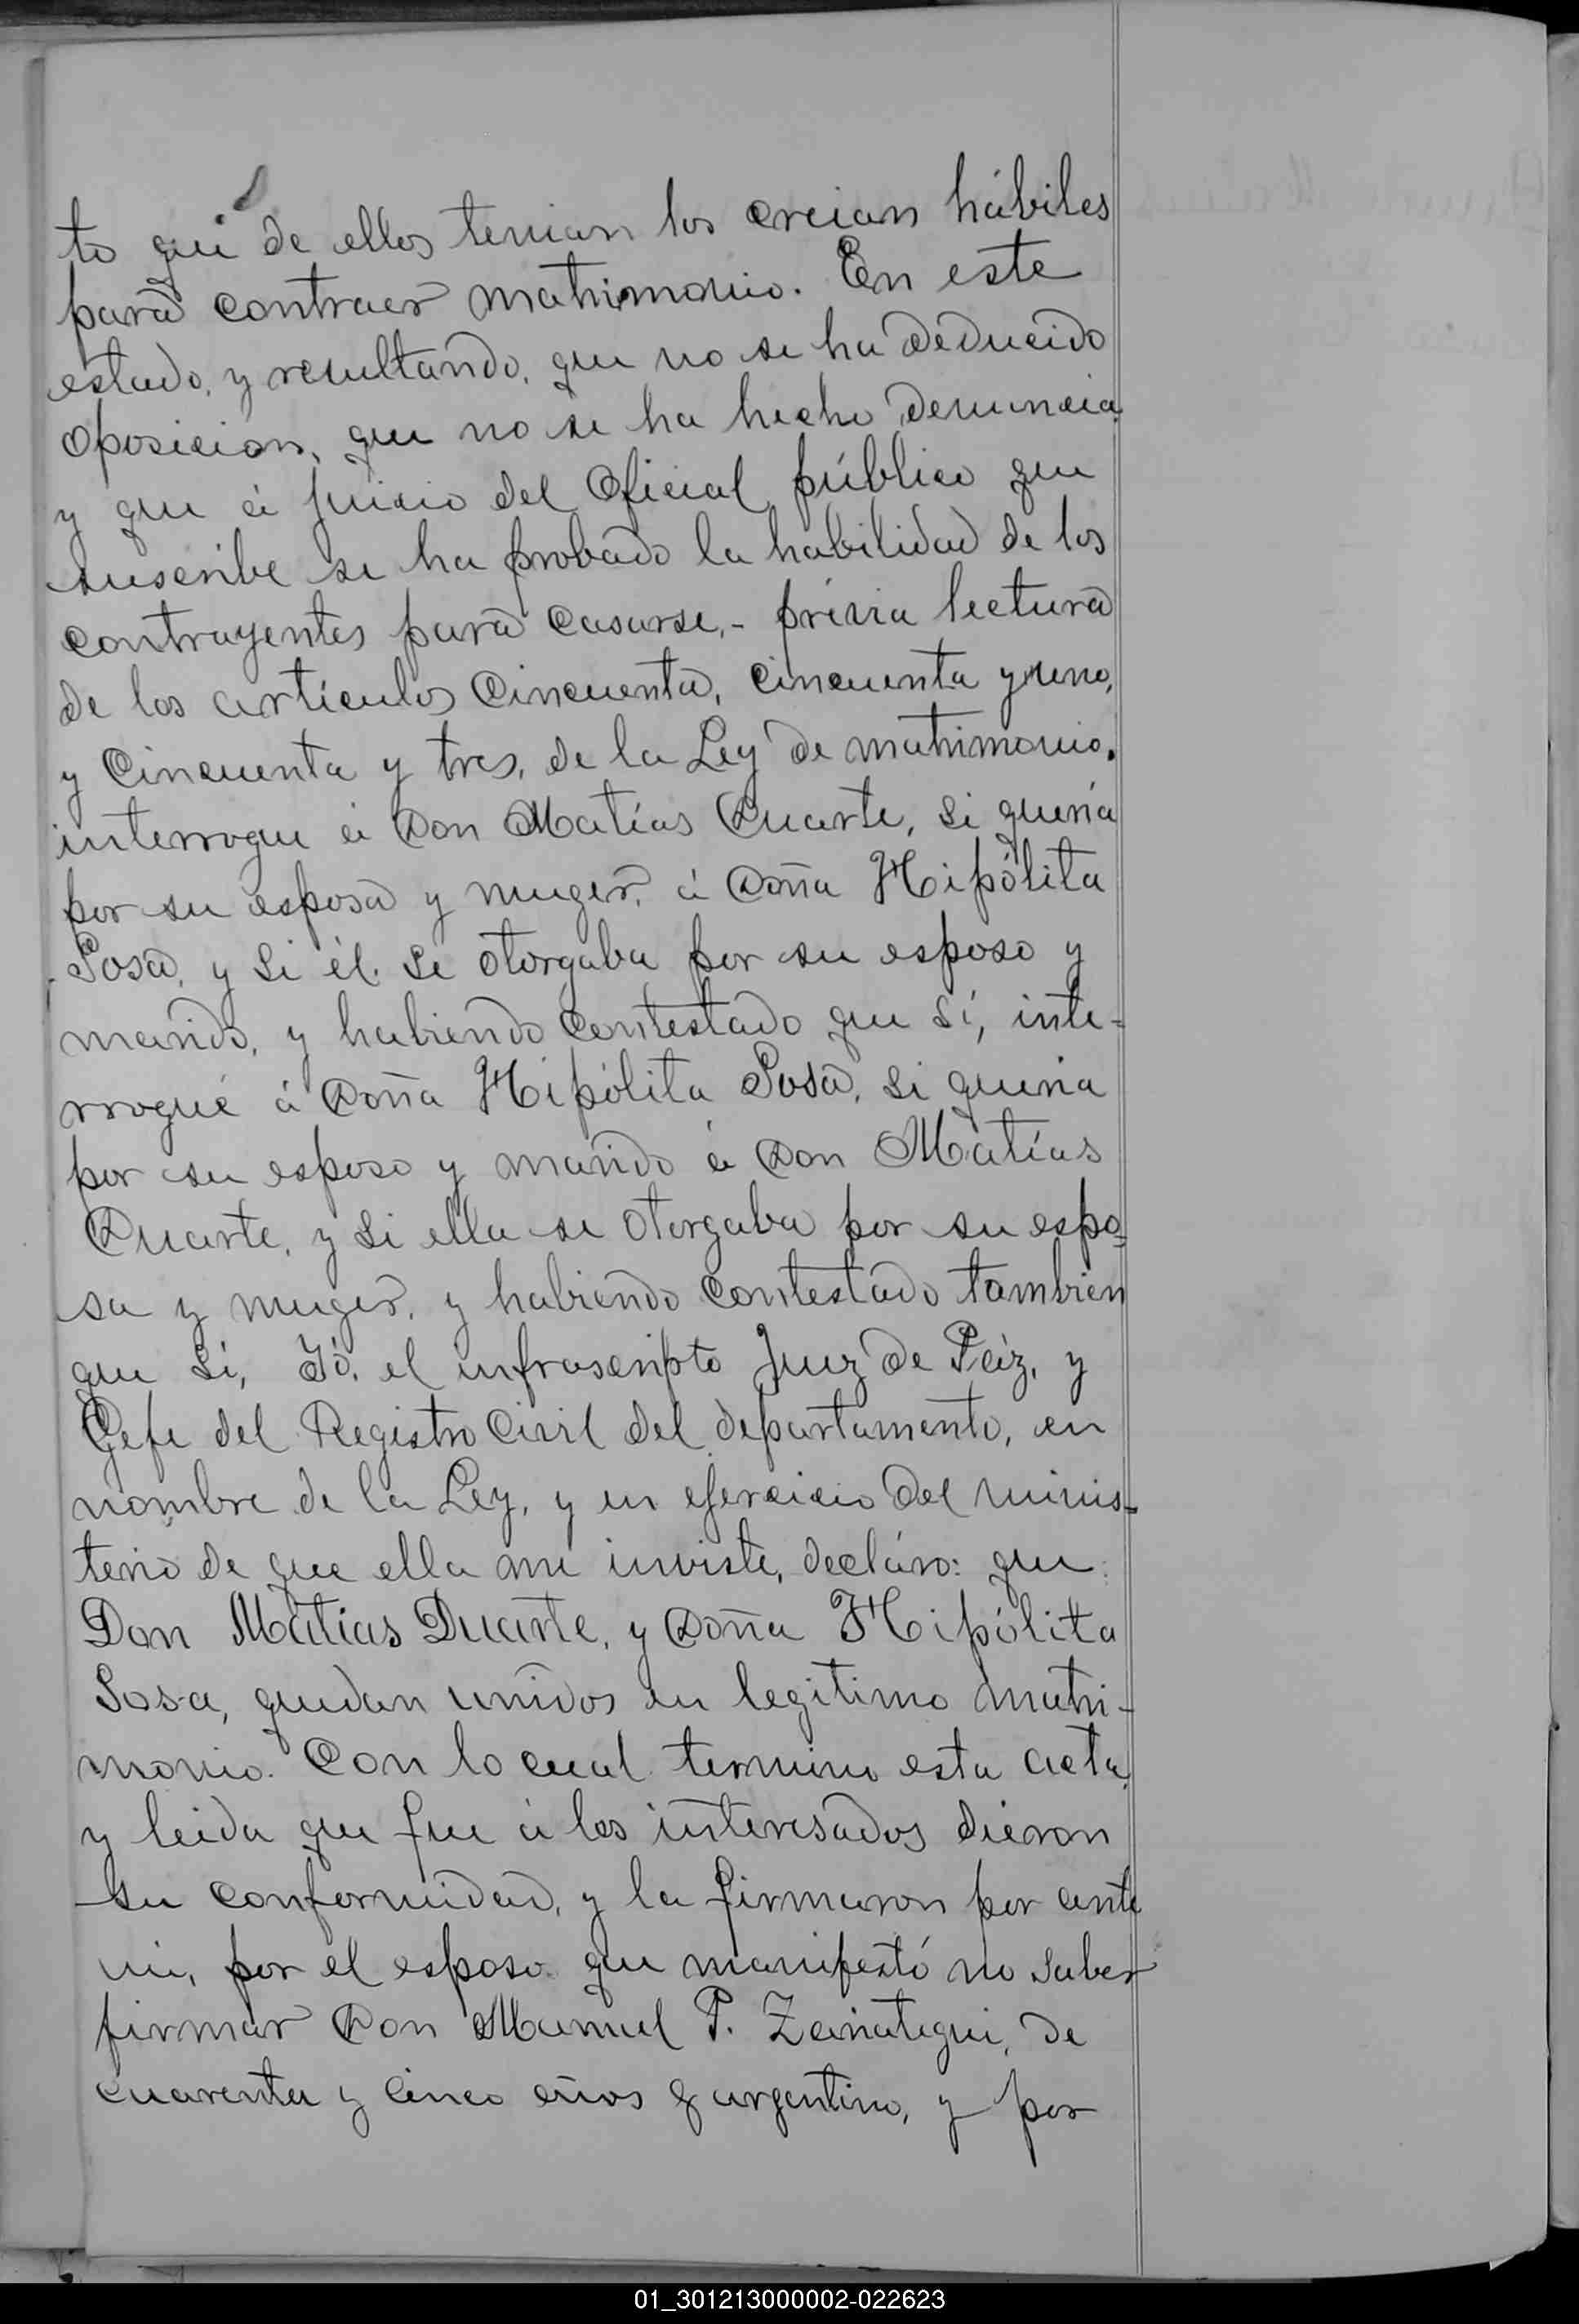 to que de ellos tenian los creian hábiles
para contraer matrimonio. En este
estado, y resultando, que no se ha deducido
oposicion, que no se ha hecho denuncia
y que á juicio del Oficial público que
suscribe se ha probado la habilidad de los
contrayentes para casarse,- prévia lectura
de los artículos Cincuenta, cincuenta y uno,
y Cincuenta y tres, de la Ley de matrimonio.
interrogue á Don Matías Duarte, si quería
por su esposa y muger, á Doña Hipólita
Sosa, y si él se otorgaba por su esposo y
marido, y habiendo contestado que sí, inte-
rrogué á Doña Hipólita Sosa, si queria
por su esposo y marido á Don Matías
Duarte, y si ella se otorgaba por su espo=
sa y muger, y habiendo contestado tambien
que sí, Yó, el infrascripto Juez de Páz, y
Gefe del Registro Civil del departamento, en
nombre de la Ley, y en ejercicio del minis-
terio de que ella me inviste, decláro: que
Don Matias Duarte, y Doña Hipólita
Sosa, quedan unidos en legitimo matri-
monio. Con lo cual termino esta acta,
y leida que fue á los interesados dieron
su conformidad, y la firmaron por ante
mi, por el esposo que manifestó no saber
firmar Don Manuel P. Zeinategui, de
cuarenta y cinco años y argentino, y por
01_301213000002-022623